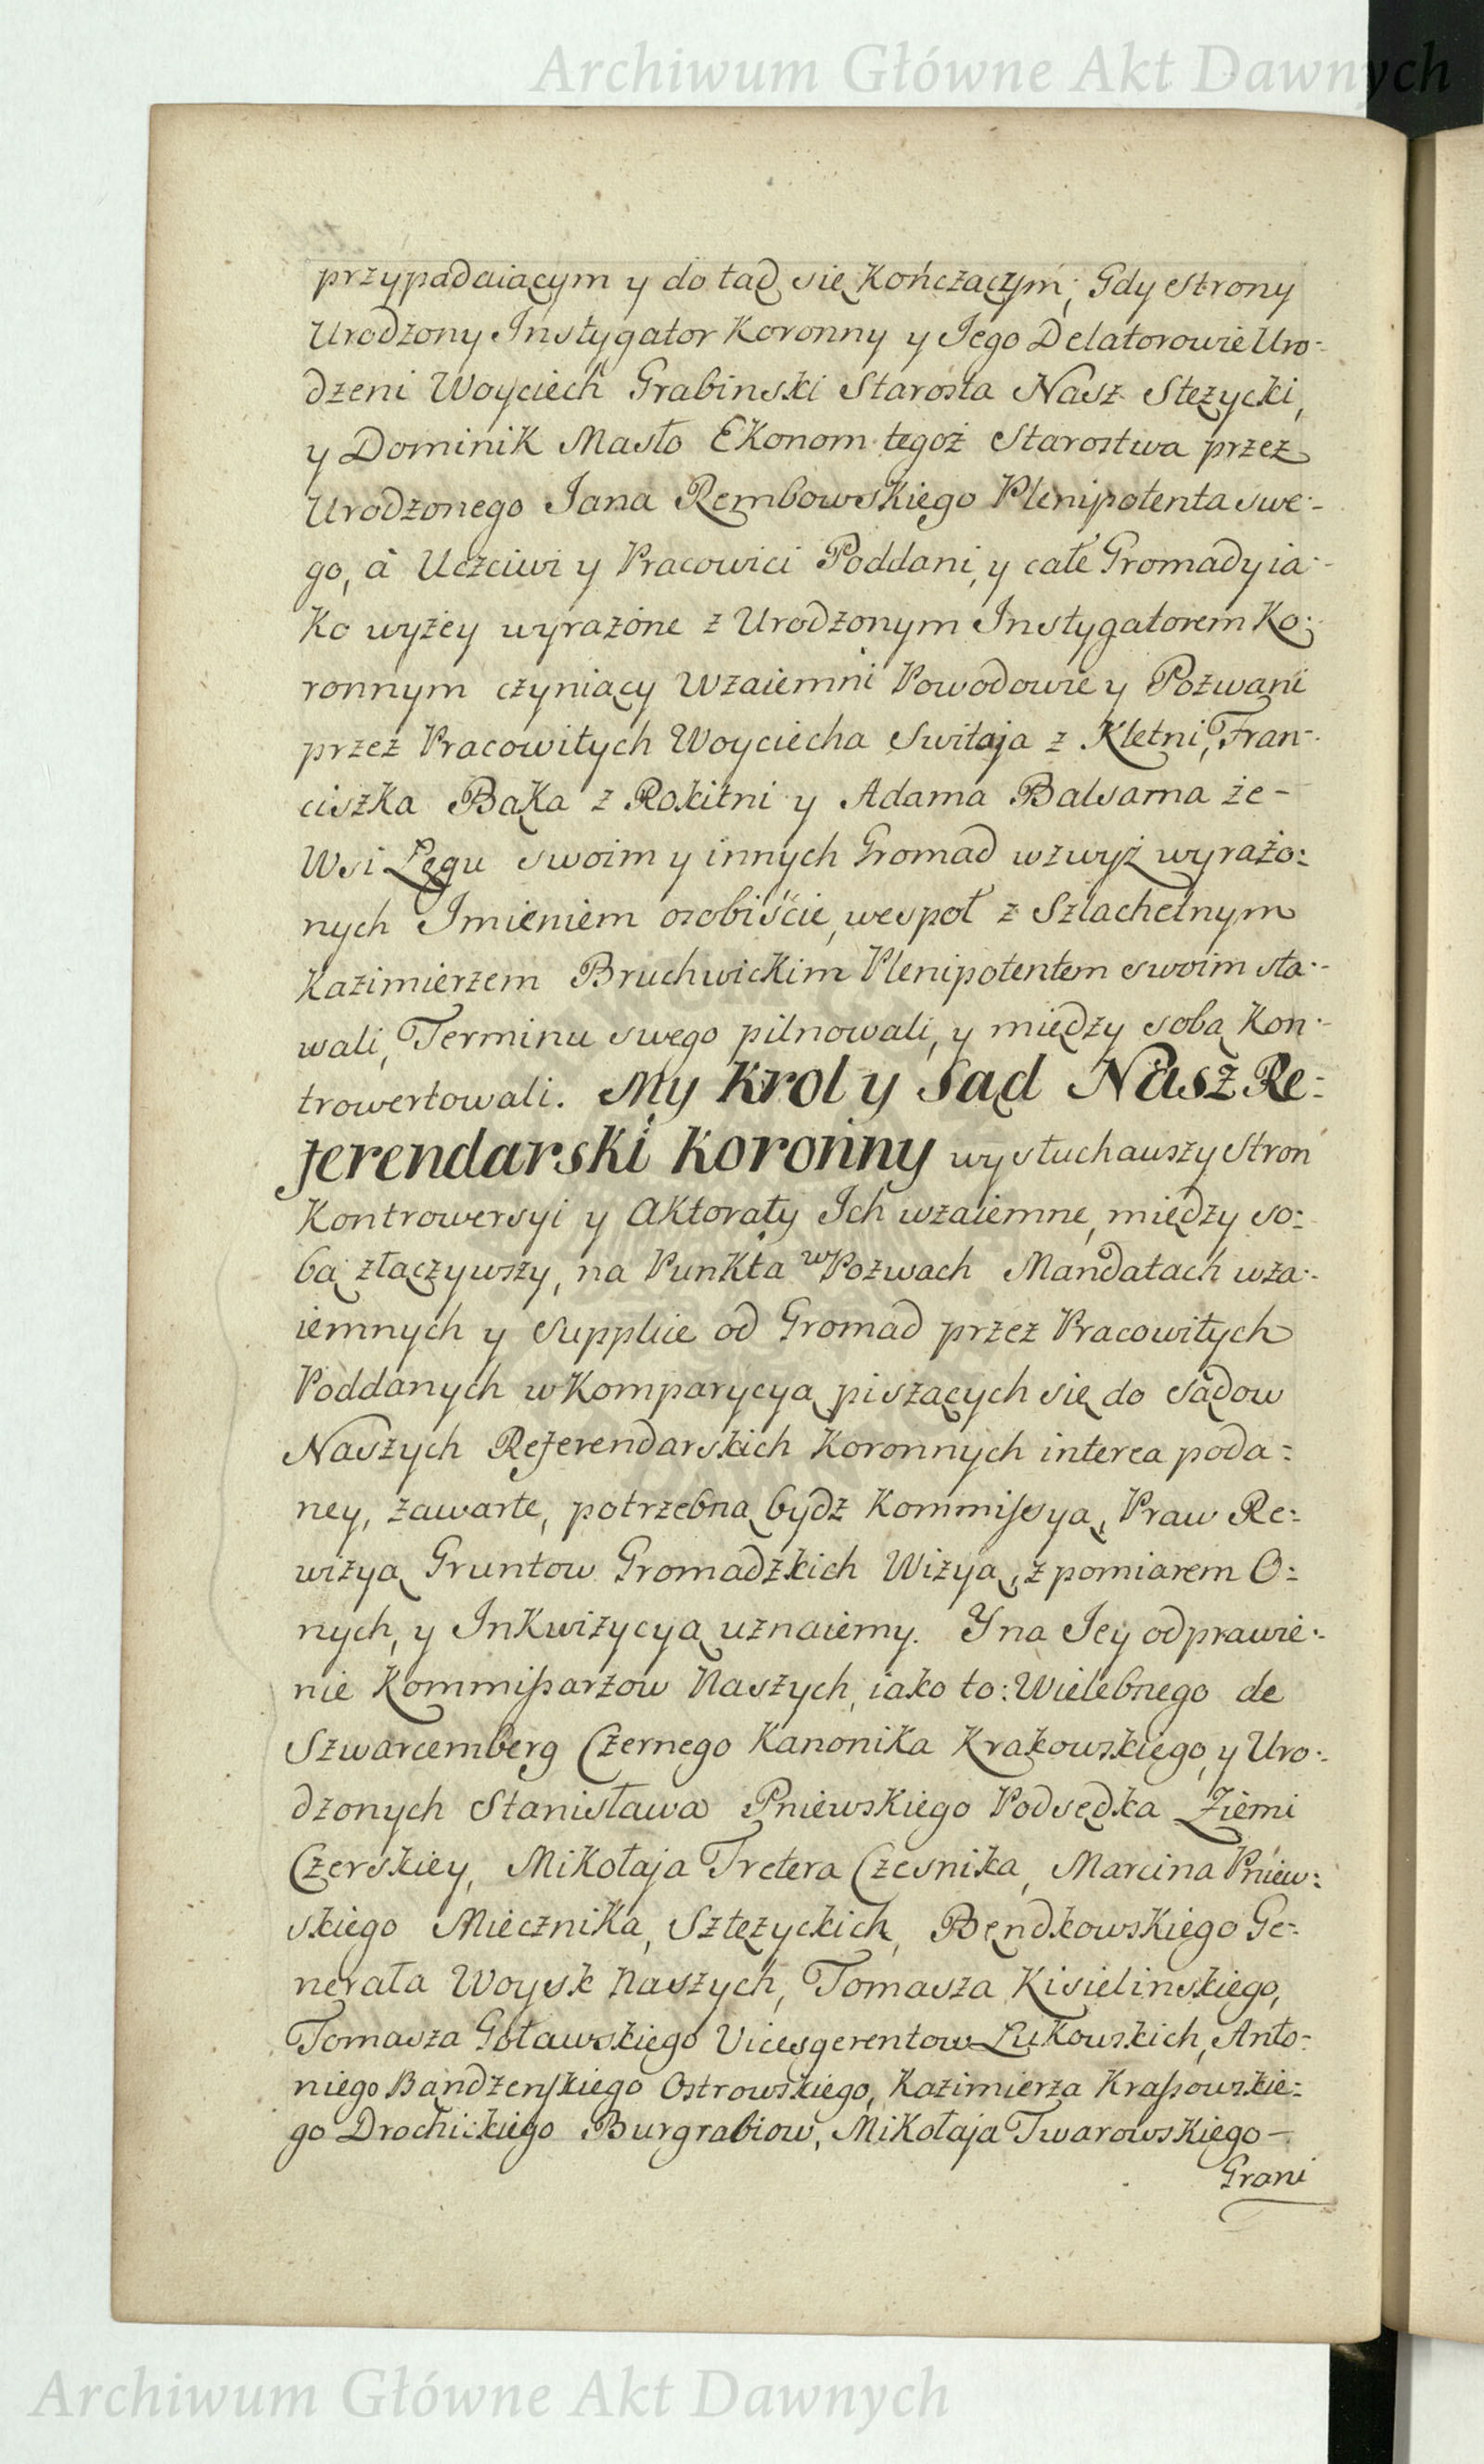 Archiwum Główne Akt Dawnych
przypadaiącym y do tąd się Kończączym; Gdy Strony
Urodzony Instygator Koronny y Jego Delatorowie Uro-
dzeni Woyciech Grabinski Starosta Nasz Stężycki,
y Dominik Masło Ekonom tegoż Starostwa przez
Urodzonego Jana Rembowskiego Plenipotenta swe-
go, à Uczciwi y Pracowici Poddani, y całe Gromady ia-
ko wyżey wyrażone z Urodzonym Instygatorem Ko-
ronnym czyniący Wzaiemni Powodowie y Pozwani
przez Pracowitych Woyciecha Switaja z Kletni, Fran-
ciszka Bąka z Rokitni y Adama Balsama ze-
Wsi Łęgu swoim y innych Gromad wzwyż wyrażo:
nych Imieniem osobiście, wespoł z Szlachetnym
Kazimierzem Bruchwickim Plenipotentem swoim sta-
wali, Terminu swego pilnowali, y między sobą Kon-
trowertowali. My Krol y Sąd Nasz Re:
ferendarski Koronny wysłuchawszy Stron
Kontrowersyi y Aktoraty Ich wzaiemne, między so:
bą złączywszy, na Punkta w Pozwach Mandatach wza-
iemnych y Supplice od Gromad przez Pracowitych
Poddanych w Komparycyą piszących się do Sądow
Naszych Referendarskich Koronnych interea poda:
ney, zawarte, potrzebną bydz Kommissyą, Praw Re:
wizyą Gruntow Gromadzkich Wizyą, z pomiarem O:
nych, y Inkwizycyą uznaiemy. Y na Jey odprawie-
nie Kommissarzow Naszych, iako to: Wielebnego de
Szwarcemberg Czernego Kanonika Krakowskiego, y Uro-
dzonych Stanisława Pniewskiego Podsędka Ziemi
Czerskiey, Mikołaja Tretera Czesnika, Marcina Pniew:
skiego Miecznika, Sztężyckich, Bendkowskiego Ge:
nerała Woysk Naszych, Tomasza Kisielinskiego,
Tomasza Gotawskiego Vicesgerentow Łukowskich, Anto:
niego Bandzenskiego Ostrowskiego, Kazimierza Krassowskie:
go Drochickiego Burgrabiow, Mikołaja Twarowskiego -
Grani
Archiwum Główne Akt Dawnych